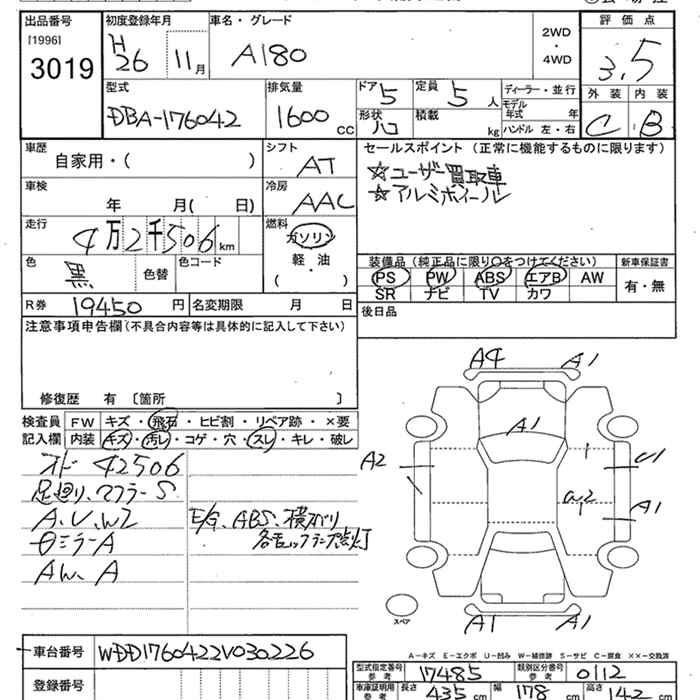 出品番号 初度登録年月 車名・グレード 2WD ・ 4WD 評価点
[1996] 3019 H26 11月 A180 3.5
型式 排気量 ドア 5 定員 5人 ディーラー・並行 外装 内装
DBA-176042 1600cc 形状 ハコ 積載 kg モデル年式 年 C B
ハンドル 左・右
車歴 シフト セールスポイント(正常に機能するものに限ります)
自家用・( ) AT ☆ユーザー買取車
車検 冷房 ☆アルミホイール
年 月( 日) AAC
走行 燃料
4万2千506km ガソリン
色 色替 色コード 軽・油 装備品(純正品に限り○をつけてください) 新車保証書
黒 ( ) PS PW ABS エアB AW 有・無
SR ナビ TV カワ
R券 19450円 名変期限 月 日 後日品
注意事項申告欄(不具合内容等は具体的に記入して下さい)
修復歴 有 〔箇所 〕
検査員 FW キズ・飛石・ヒビ割・リペア跡・×要
記入欄 内装 キズ・汚レ・コゲ・穴・スレ・キレ・破レ
オド 42506
足廻り、マフラーS
A、U、W2 E/G、ABS、横スベリ
日ミラーA 各キックランプ点灯
AW、A
A4 A1
A1
A2 A1
A1
A1 A1
スペア
A-キズ E-エクボ U-凹み W-補修跡 S-サビ C-腐食 ××-交換済
車台番号 WDD1760422V030226
登録番号
型式指定番号 参考 17485 類別区分番号 参考 0112
車庫証明用 参考 長さ 435cm 幅 178cm 高さ 142cm